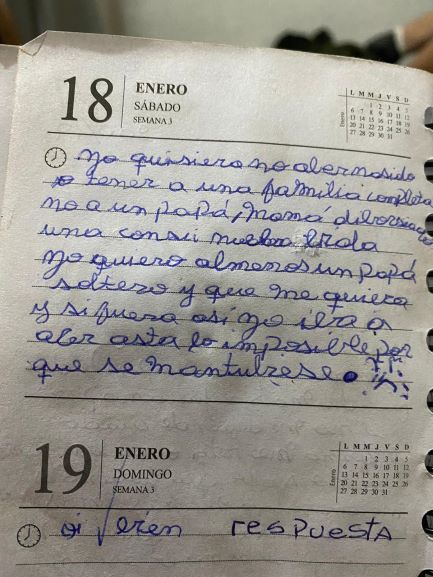 18
ENERO
SÁBADO
SEMANA 3
Enero
L M M J V S D
1 2 3 4 5
6 7 8 9 10 11 12
13 14 15 16 17 18 19
20 21 22 23 24 25 26
27 28 29 30 31
yo quisiero no aber nasido
tener a una familia completa
no a un papá, mamá diborsiado
una consu
yo quiero almenos un papá
soltero y que me quiera
y si fuera asi yo iria a
aber asta lo imposible por
que se mantubiese.
19
ENERO
DOMINGO
SEMANA 3
Enero
L M M J V S D
1 2 3 4 5
6 7 8 9 10 11 12
13 14 15 16 17 18 19
20 21 22 23 24 25 26
27 28 29 30 31
oi respuesta